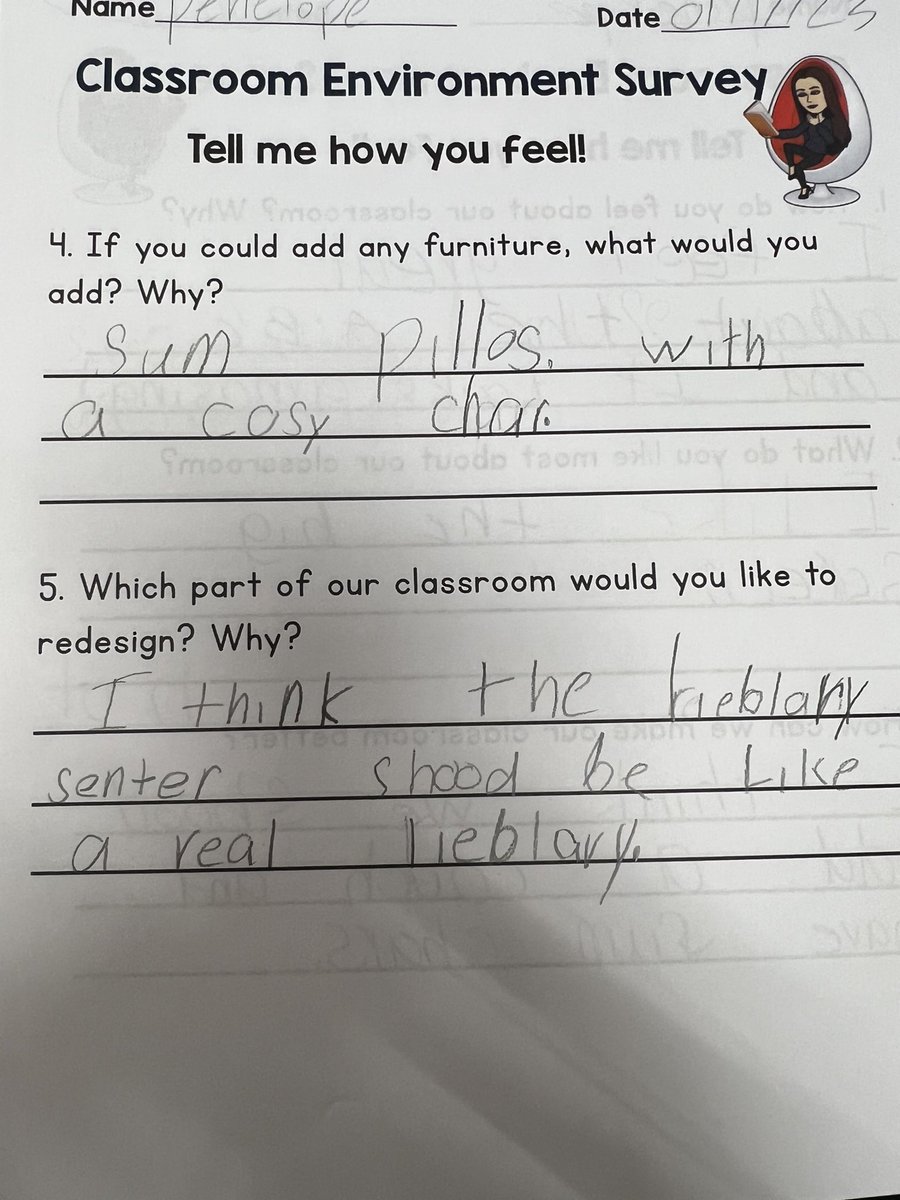 Name Penelope Date
Classroom Environment Survey
Tell me how you feel!
4. If you could add any furniture, what would you
add? Why?
Sum pillos. with
a cosy char.
5. Which part of our classroom would you like to
redesign? Why?
I think the lieblary
senter shood be Like
a real lieblary.